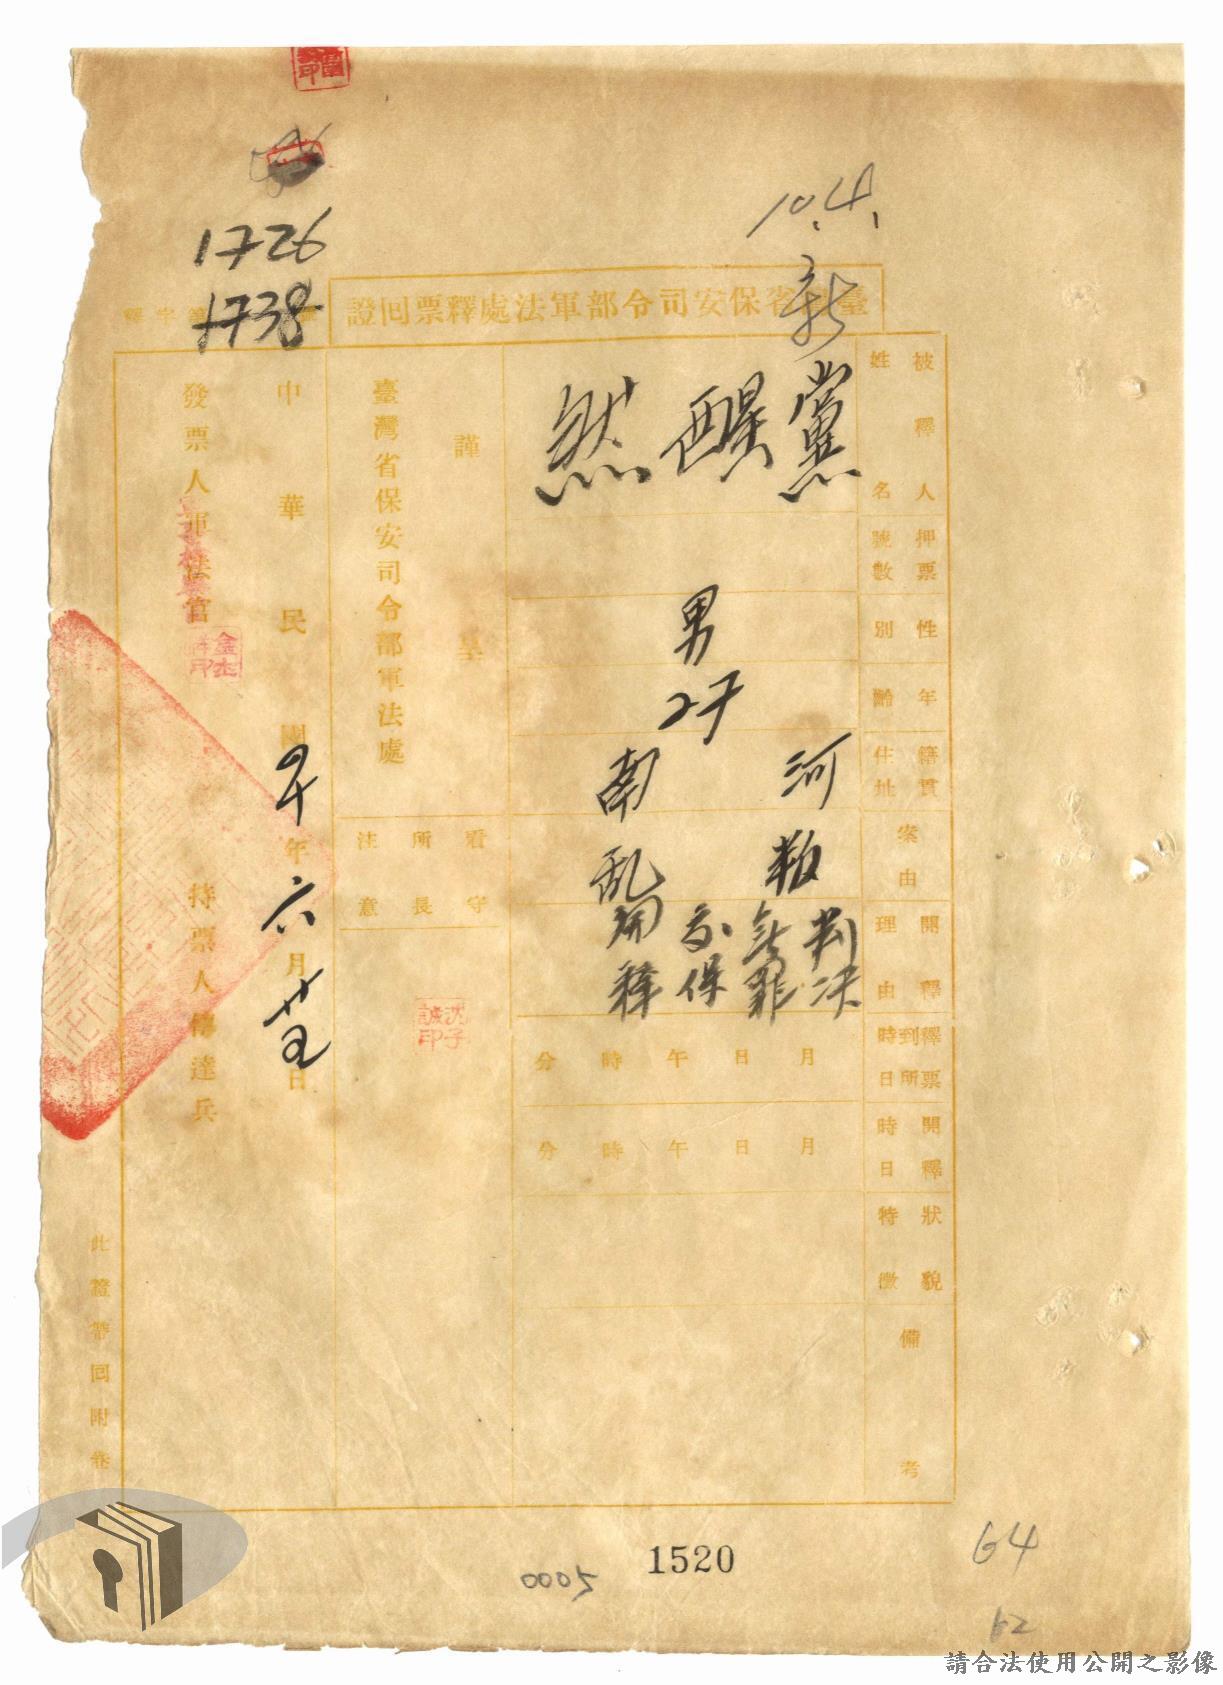 1726
1738
10.4.
臺灣省保安司令部軍法處釋票回證
被釋人姓名
黨醒然
押票號數
性別
男
年齡
27
籍貫住址
河南
案由
叛乱
開釋理由
判决無罪交保開釋
釋票到所時日
月日午時分
開釋時日
月日午時分
狀貌特徵
備考
謹呈
臺灣省保安司令部軍法處
看守所長注意
沈子誠印
中華民國四十年六月廿五日
發票人軍法官
持票人傳達兵
此證帶回附卷
0005
1520
64
62
請合法使用公開之影像